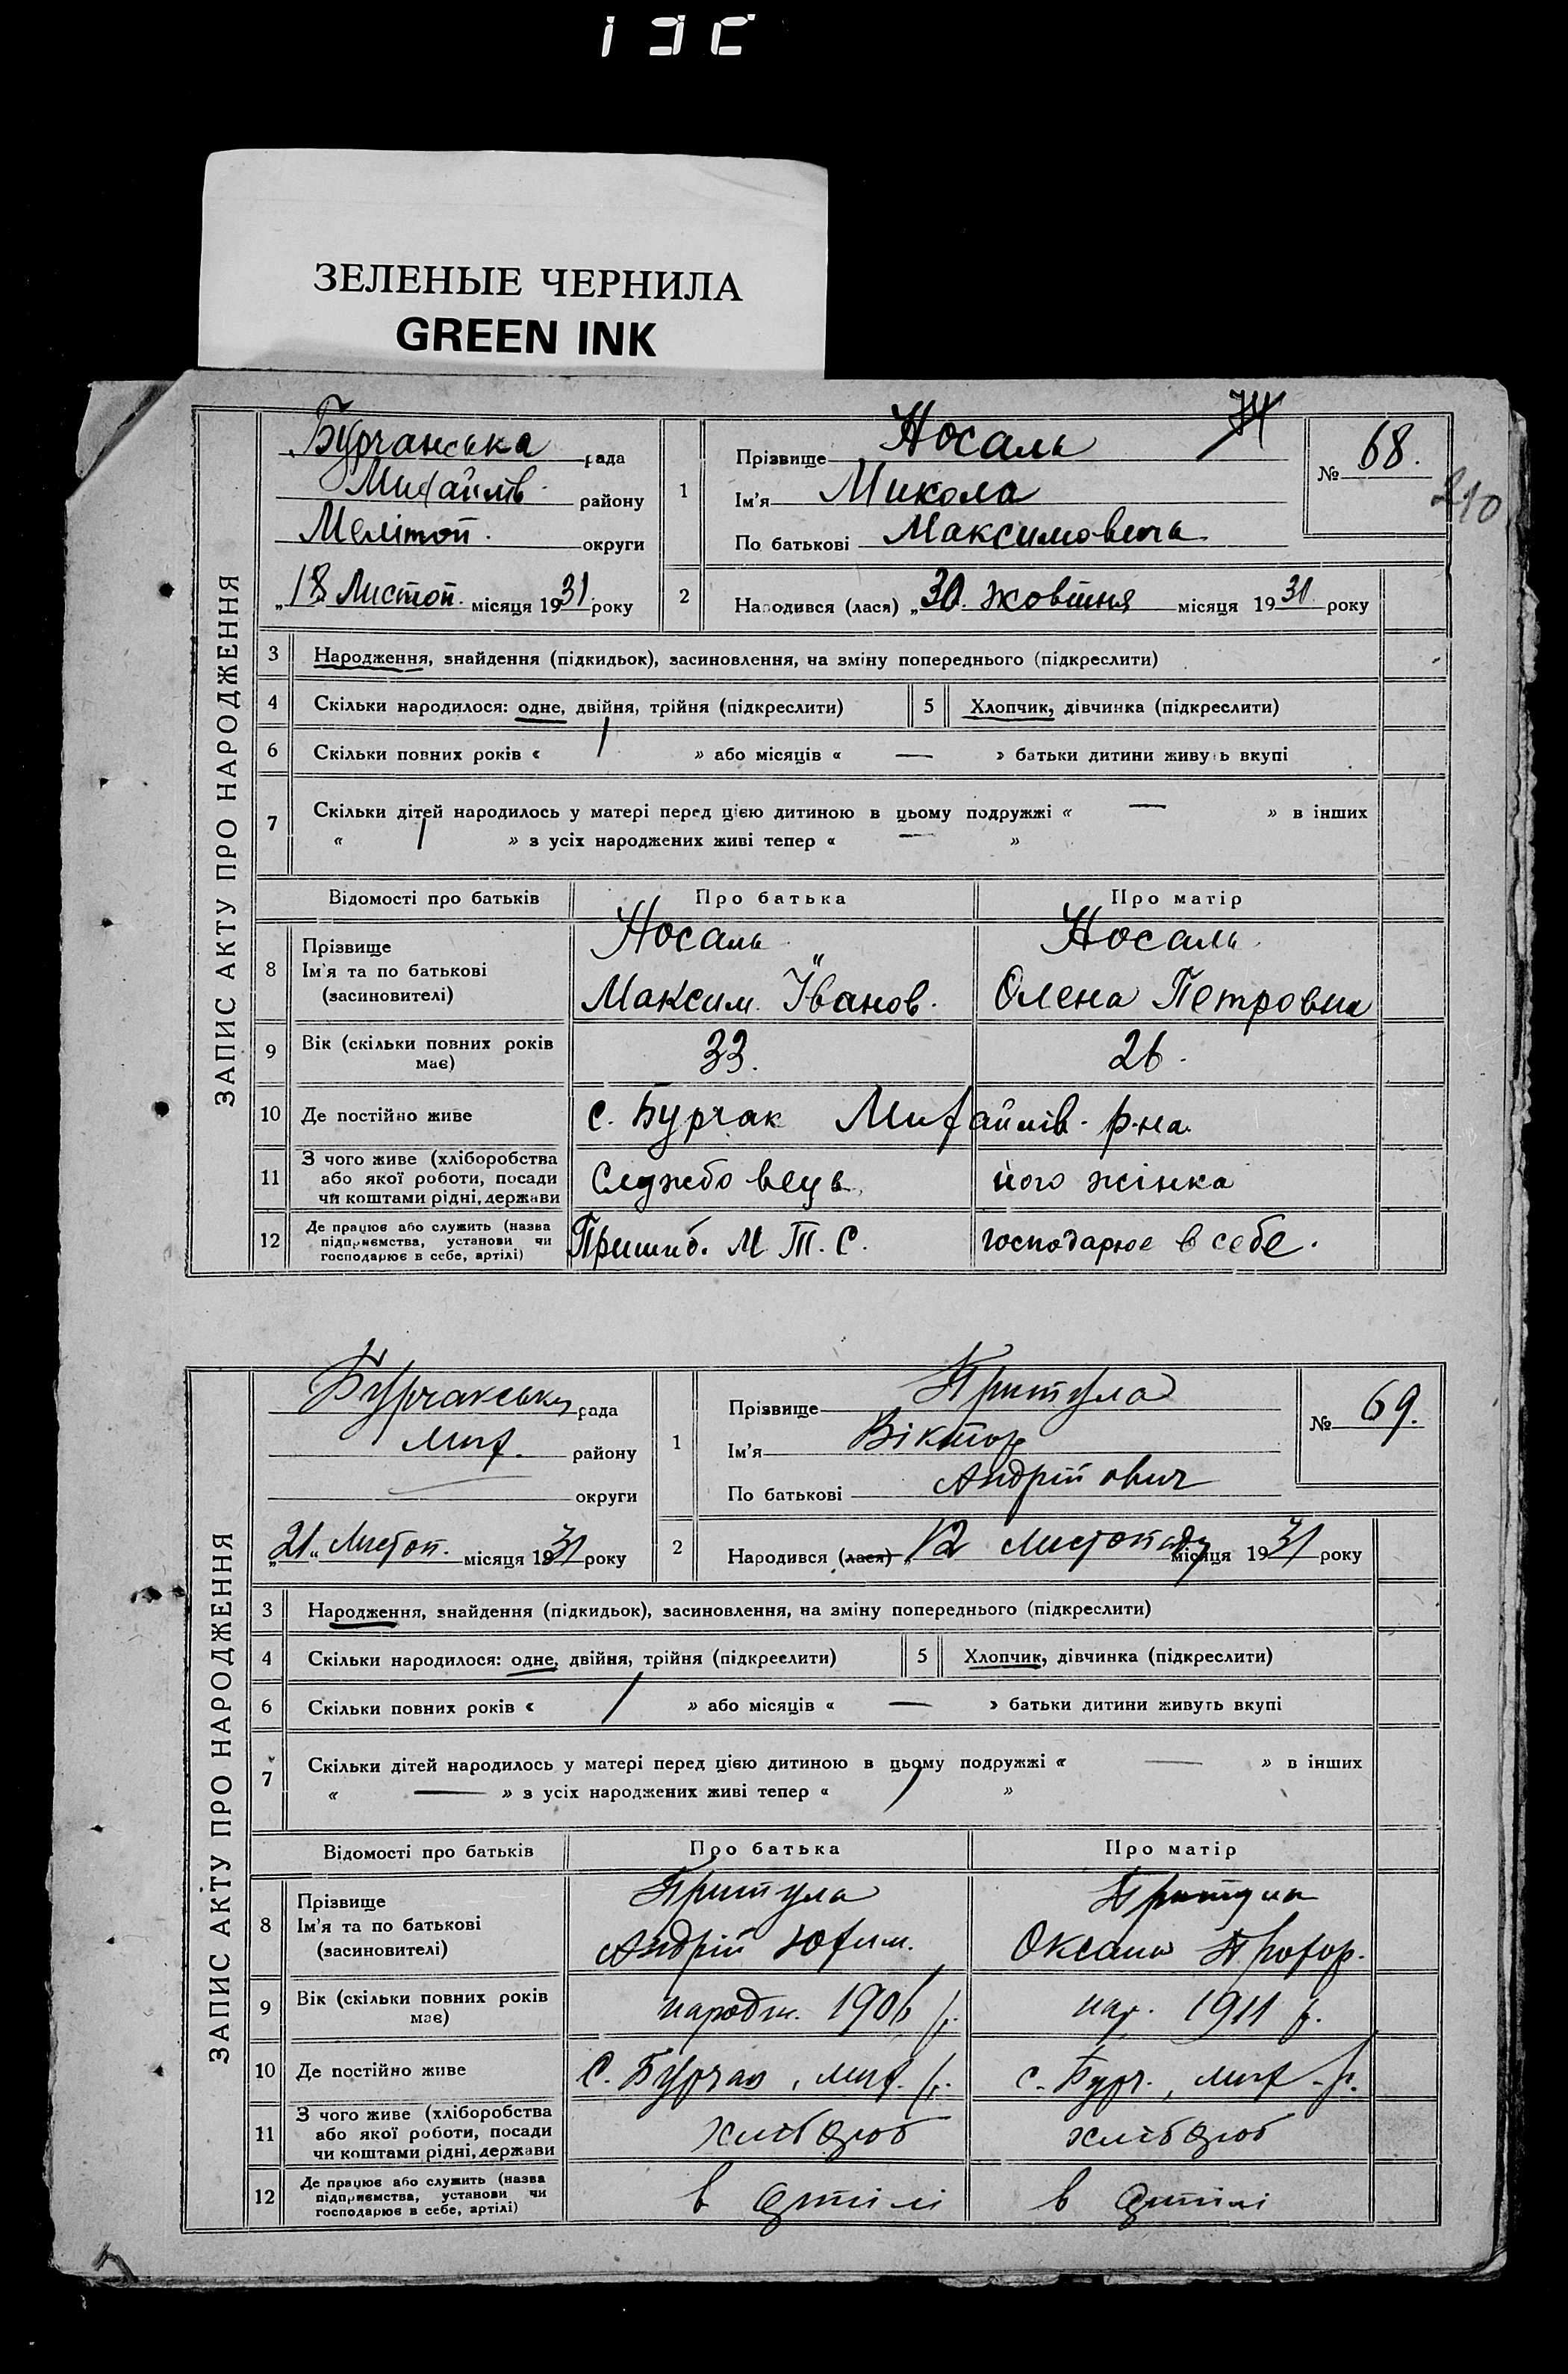 ЗЕЛЕНЫЕ ЧЕРНИЛА
GREEN INK
74
210
ЗАПИС АКТУ ПРО НАРОДЖЕННЯ
Бурчанська рада
Михайлів. району
Мелітоп. округи
„18 Листоп. місяця 1931 року
1 Прізвище Носаль
Ім'я Микола
По батькові Максимовича
№ 68.
2 Народився (лася) „30. жовтня місяця 1931 року
3 Народження, знайдення (підкидьок), засиновлення, на зміну попереднього (підкреслити)
4 Скільки народилося: одне, двійня, трійня (підкреслити) 5 Хлопчик, дівчинка (підкреслити)
6 Скільки повних років « 1 » або місяців « — » батьки дитини живуть вкупі
7 Скільки дітей народилось у матері перед цією дитиною в цьому подружжі « — » в інших
« 1 » з усіх народжених живі тепер « — »
Відомості про батьків Про батька Про матір
8 Прізвище Носаль Носаль
Ім'я та по батькові
(засиновителі) Максим. Іванов. Олена Петровна
9 Вік (скільки повних років має) 33. 26.
10 Де постійно живе с. Бурчак Михайлів. р-на.
11 З чого живе (хліборобства
або якої роботи, посади
чи коштами рідні, держави Службовець його жінка
12 Де працює або служить (назва
підприємства, установи чи
господарює в себе, артілі) Пришиб. М.Т.С. господарює в себе.
ЗАПИС АКТУ ПРО НАРОДЖЕННЯ
Бурчакська рада
Мих. району
— округи
„21“ Листоп. місяця 1931 року
1 Прізвище Притула
Ім'я Віктор
По батькові Андрійович
№ 69.
2 Народився (лася) „12 листопаду місяця 1931 року
3 Народження, знайдення (підкидьок), засиновлення, на зміну попереднього (підкреслити)
4 Скільки народилося: одне, двійня, трійня (підкреслити) 5 Хлопчик, дівчинка (підкреслити)
6 Скільки повних років « 1 » або місяців « — » батьки дитини живуть вкупі
7 Скільки дітей народилось у матері перед цією дитиною в цьому подружжі « — » в інших
« — » з усіх народжених живі тепер « 1 »
Відомості про батьків Про батька Про матір
8 Прізвище Притула Притула
Ім'я та по батькові
(засиновителі) Андрій Юхим. Оксана Прохор.
9 Вік (скільки повних років має) народж. 1906 р. нар. 1911 р.
10 Де постійно живе с. Бурчак, Мих. р. с. Бурч., Мих. р.
11 З чого живе (хліборобства
або якої роботи, посади
чи коштами рідні, держави хлібороб хлібороб
12 Де працює або служить (назва
підприємства, установи чи
господарює в себе, артілі) в артілі в артілі